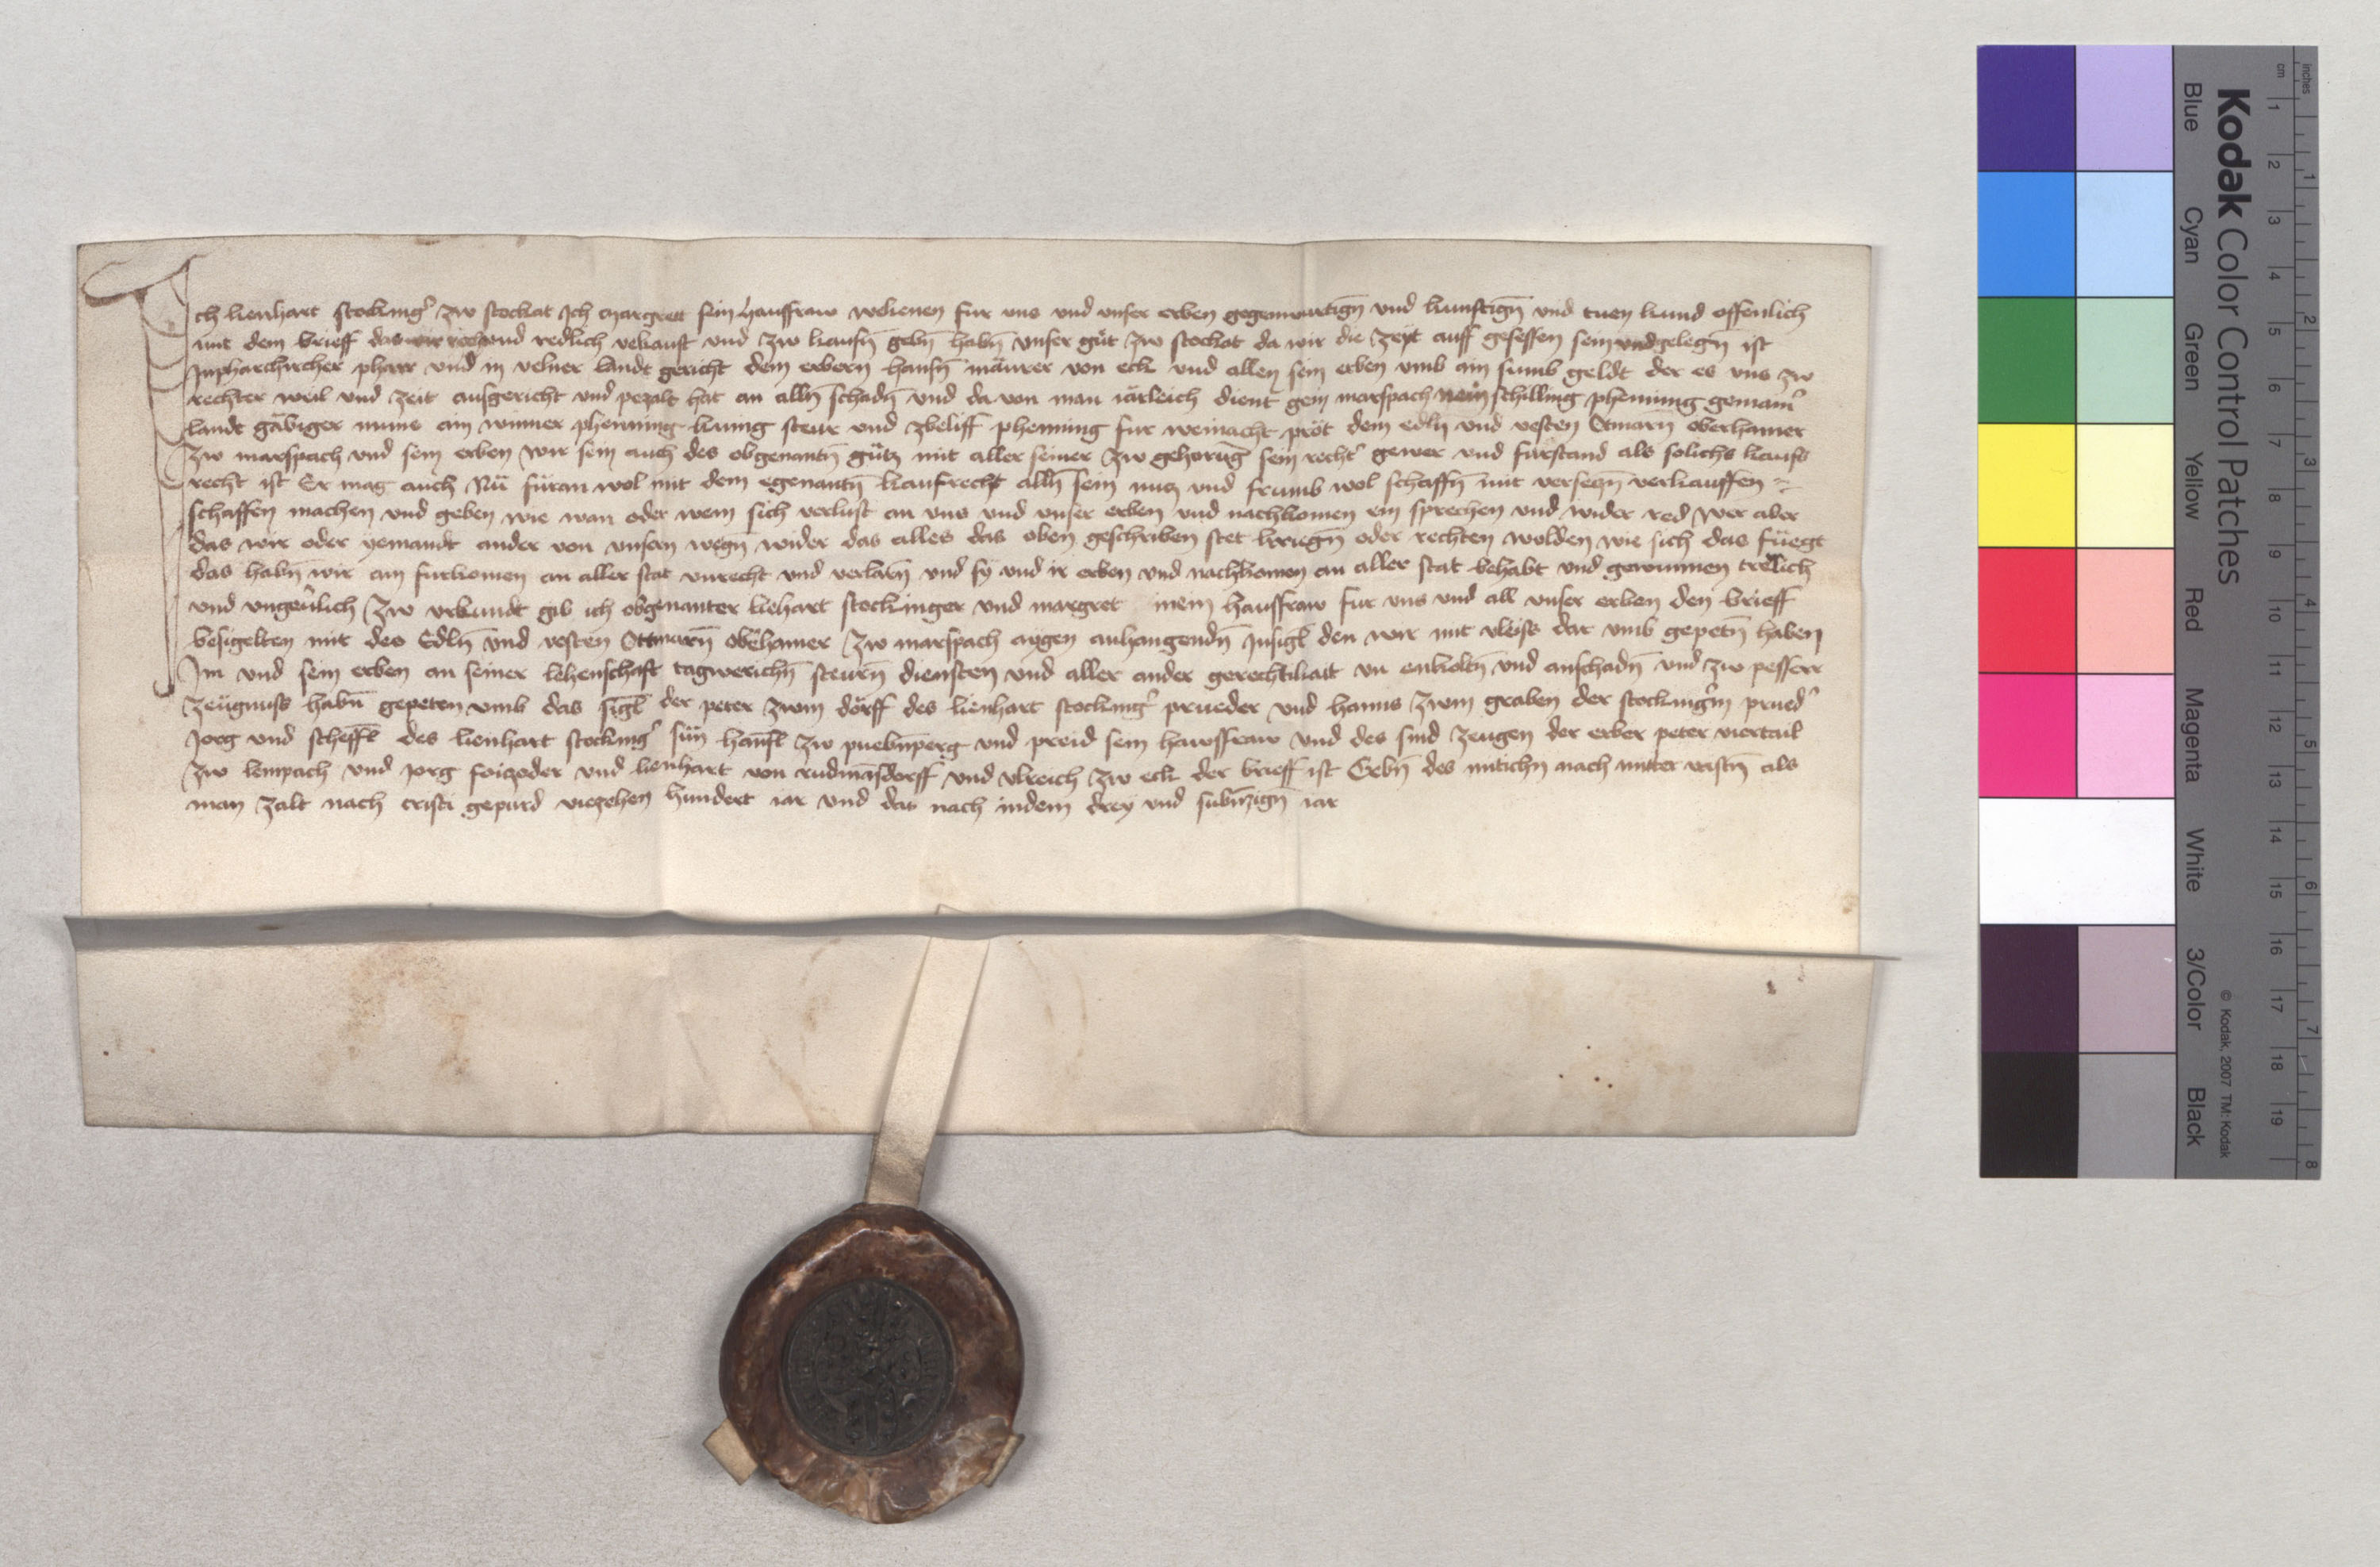 Ich lienhart stockingͬ zw stockat Ich margret sein hausfraw vekienen fur uns und unser erben gegenwurtigñ und kunftigñ und tuen kund offenlich
mit dem brieff das wir und redlich vekauft und zw kaufñ gebñ habñ unser gůt zw stockat da wir die zeit auff gesessen sein und gelegñ ist
In pharchircher pharr und in velner landt gericht dem erbern hansñ mäurer von eck und allen sein erben umb ain sumb geldt der es uns zw
rechter weil und zeit ausgericht und pezalt hat an allñ schadñ und da von man iärleich dient gein marspach schilling phenning gemainͬ
landt gäbiger münse ain winner phenning kunig steur und zbeliff phenning fur weinacht pröt dem edlñ und vesten Otmarñ oberhamer
zw marspach und sein erben wir sein auch des obgenantñ gůtz mit aller seiner zw gehorũg sein rechtͬ gewer und fürstand als solichs kaufs
recht ist Er mag auch Nů füran wol mit dem egenantñ kaufrecht allñ sein nutz und frumb wol schaffñ mit versetzñ verkauffen
schaffen machen und geben wie wan oder wem sich verlust an uns und unser erben und nachkomen ein sprechen und wider red wer aber
das wir oder yemandt ander von unsern wegñ wider das alles das oben geschriben stet krīegñ oder rechten wolden wie sich das füegt
das habñ wir ain furkomen an aller stat unrecht und verlarñ und sy und ir erben und nachkomen an aller stat behabt und gewunnen trelich
und ungeůlich zw urkundt gib ich obgenanter liehart stockinger und margret mein hausfraw fur uns und all unser erben den brieff
besigelten mit des Edlñ und vesten Ottmarñ obͤhamer zw marspach aygen anhangendñ Insigl den wir mit vleiss dar umb gepetñ haben
Im und sein erben an seiner lehenschaft tagwerichñ steurñ diensten und aller ander gerechtikait un enkoltñ und anschadñ und zw pesserr
zeügnuss habñ gepeten umb das sigl der peter zwm dorff des lienhart stockingͬ prueder und hanns zwm graben der stockingͬin pruedͬ
Jorg und scheffl des lienhart stockingͬ sün hansl zw puebñperg und preid sein hawsfraw und des sind zeugen der erber peter viertail
zw lempach und Jorg foizoder und lienhart von rudmãsdorff und ulreich zw eck der brieff ist Gebñ des mitichñ nach mitter vastñ als
man zalt nach cristi gepurd viezehen hundert iar und dar nach indem drey und subñzigñ iar
Kodak Color Control Patches
Blue Cyan Green Yellow Red Magenta White 3/Color Black
© Kodak, 2007 TM: Kodak
cm 1 2 3 4 5 6 7 8 9 10 11 12 13 14 15 16 17 18 19
inches 1 2 3 4 5 6 7 8